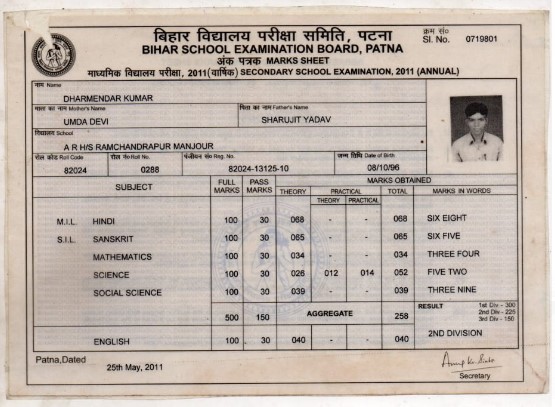 बिहार विद्यालय परीक्षा समिति, पटना
BIHAR SCHOOL EXAMINATION BOARD, PATNA
क्रम सं०
Sl. No. 0719801
अंक पत्रक MARKS SHEET
माध्यमिक विद्यालय परीक्षा, 2011 (वार्षिक) SECONDARY SCHOOL EXAMINATION, 2011 (ANNUAL)
नाम Name
DHARMENDAR KUMAR
माता का नाम Mother's Name पिता का नाम Father's Name
UMDA DEVI SHARUJIT YADAV
विद्यालय School
A R H/S RAMCHANDRAPUR MANJOUR
रोल कोड Roll Code रोल नं० Roll No. पंजीयन सं० Reg. No. जन्म तिथि Date of Birth
82024 0288 82024-13125-10 08/10/96
SUBJECT FULL MARKS PASS MARKS MARKS OBTAINED
THEORY PRACTICAL TOTAL MARKS IN WORDS
THEORY PRACTICAL
M.I.L. HINDI 100 30 068 - - 068 SIX EIGHT
S.I.L. SANSKRIT 100 30 065 - - 065 SIX FIVE
MATHEMATICS 100 30 034 - - 034 THREE FOUR
SCIENCE 100 30 026 012 014 052 FIVE TWO
SOCIAL SCIENCE 100 30 039 - - 039 THREE NINE
500 150 AGGREGATE 258 RESULT 1st Div - 300
2nd Div - 225
3rd Div - 150
ENGLISH 100 30 040 - - 040 2ND DIVISION
Patna,Dated 25th May, 2011
Secretary